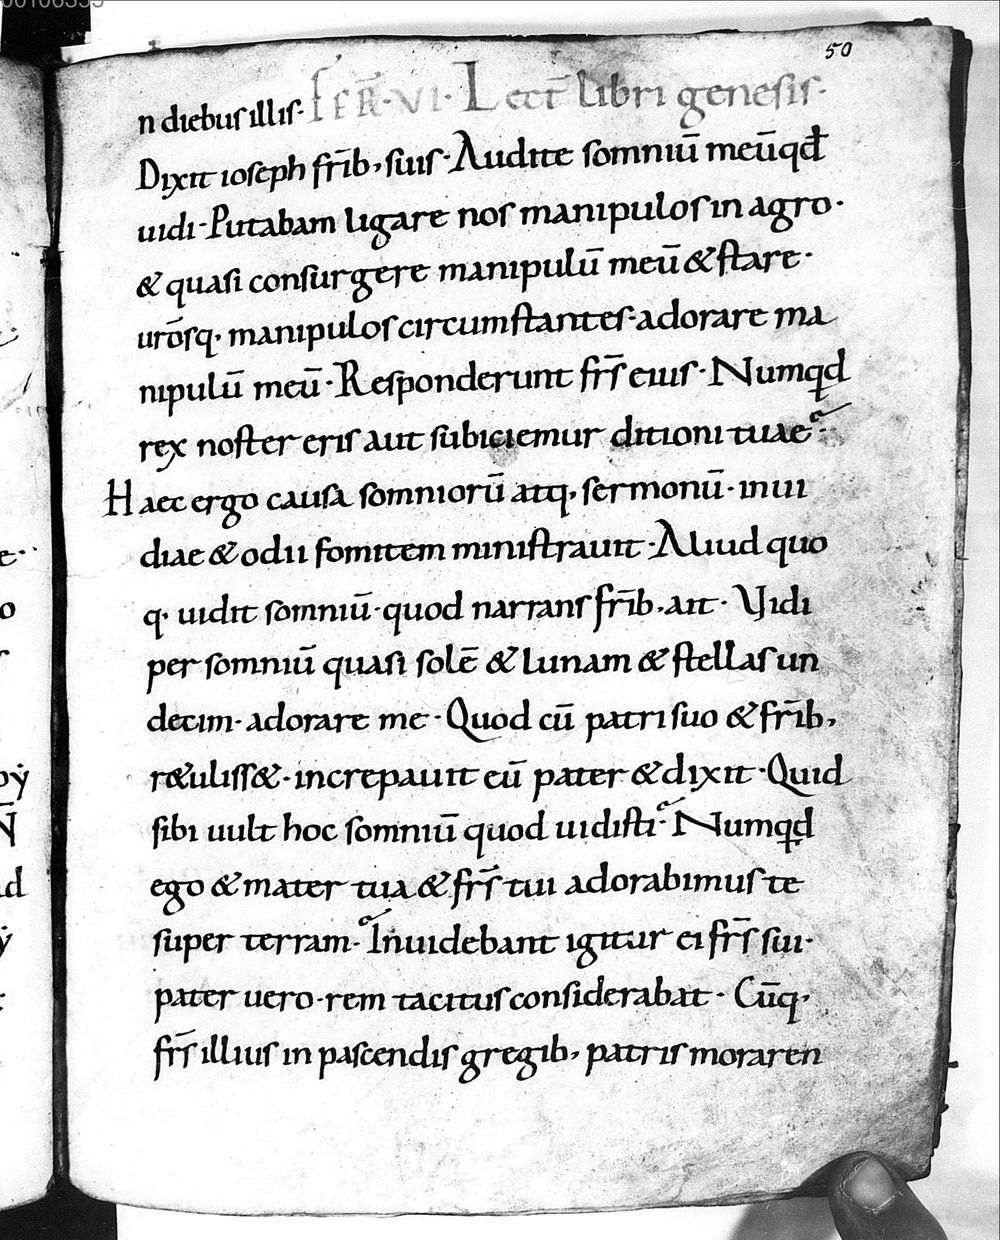 00106355
50
n diebus illis· FER̄·VI· Lect̄ libri genesis·
Dixit ioseph fr̄ib, suis· Audite somniū meū qđ
uidi· Putabam ligare nos manipulos in agro·
& quasi consurgere manipulū meū & stare·
ur̄osq, manipulos circumstantes· adorare ma
nipulū meū· Responderunt fr̄s eius· Numqd
rex noster eris aut subiciemur ditioni tuae?
Haec ergo causa somniorū atq, sermonū· inui
diae & odii fomitem ministrauit· Aliud quo
q, uidit somniū· quod narrans fr̄ib, ait· Vidi
per somniū quasi solē & lunam & stellas un
decim· adorare me· Quod cū patri suo & fr̄ib,
r&uliss&· increpauit eū pater & dixit· Quid
sibi uult hoc somniū quod uidisti? Numqd
ego & mater tua & fr̄s tui adorabimus te
super terram? Inuidebant igitur ei fr̄s sui·
pater uero· rem tacitus considerabat· Cūq,
fr̄s illius in pascendis gregib, patris moraren